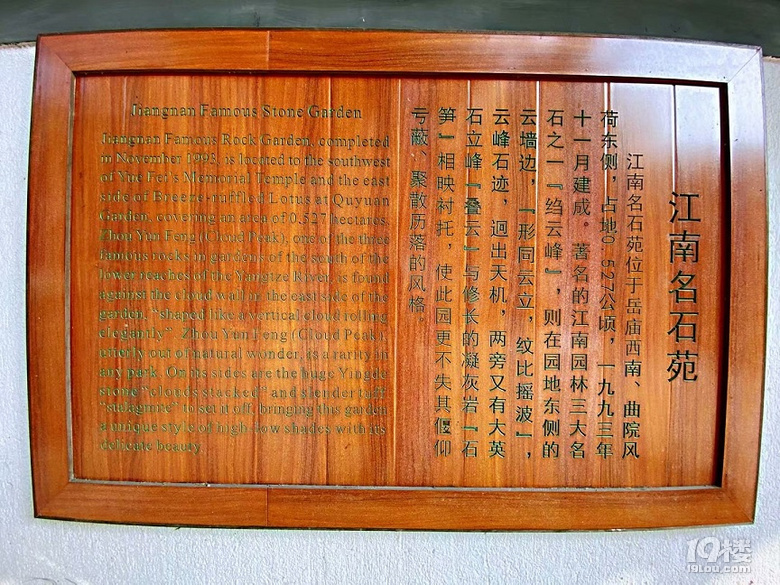 江南名石苑
江南名石苑位于岳庙西南、曲院风
荷东侧，占地0.527公顷，一九九三年
十一月建成。著名的江南园林三大名
石之一『绉云峰』，则在园地东侧的
云墙边，『形同云立，纹比摇波』，
云峰石迹，迥出天机，两旁又有大英
石立峰『叠云』与修长的凝灰岩『石
笋』相映衬托，使此园更不失其偃仰
亏蔽、聚散历落的风格。
Jiangnan Famous Stone Garden
Jiangnan Famous Rock Garden, completed
in November 1993, is located to the southwest
of Yue Fei's Memorial Temple and the east
side of Breeze-ruffled Lotus at Quyuan
Garden, covering an area of 0.527 hectares.
Zhou Yun Feng (Cloud Peak), one of the three
famous rocks in gardens of the south of the
lower reaches of the Yangtze River, is found
against the cloud wall in the east side of the
garden, "shaped like a vertical cloud rolling
elegantly". Zhou Yun Feng (Cloud Peak),
utterly out of natural wonder, is a rarity in
any park. On its sides are the huge Yingde
stone "clouds stacked" and slender tuff
"stalagmite" to set it off, bringing this garden
a unique style of high-low shades with its
delicate beauty.
19楼
19lou.com